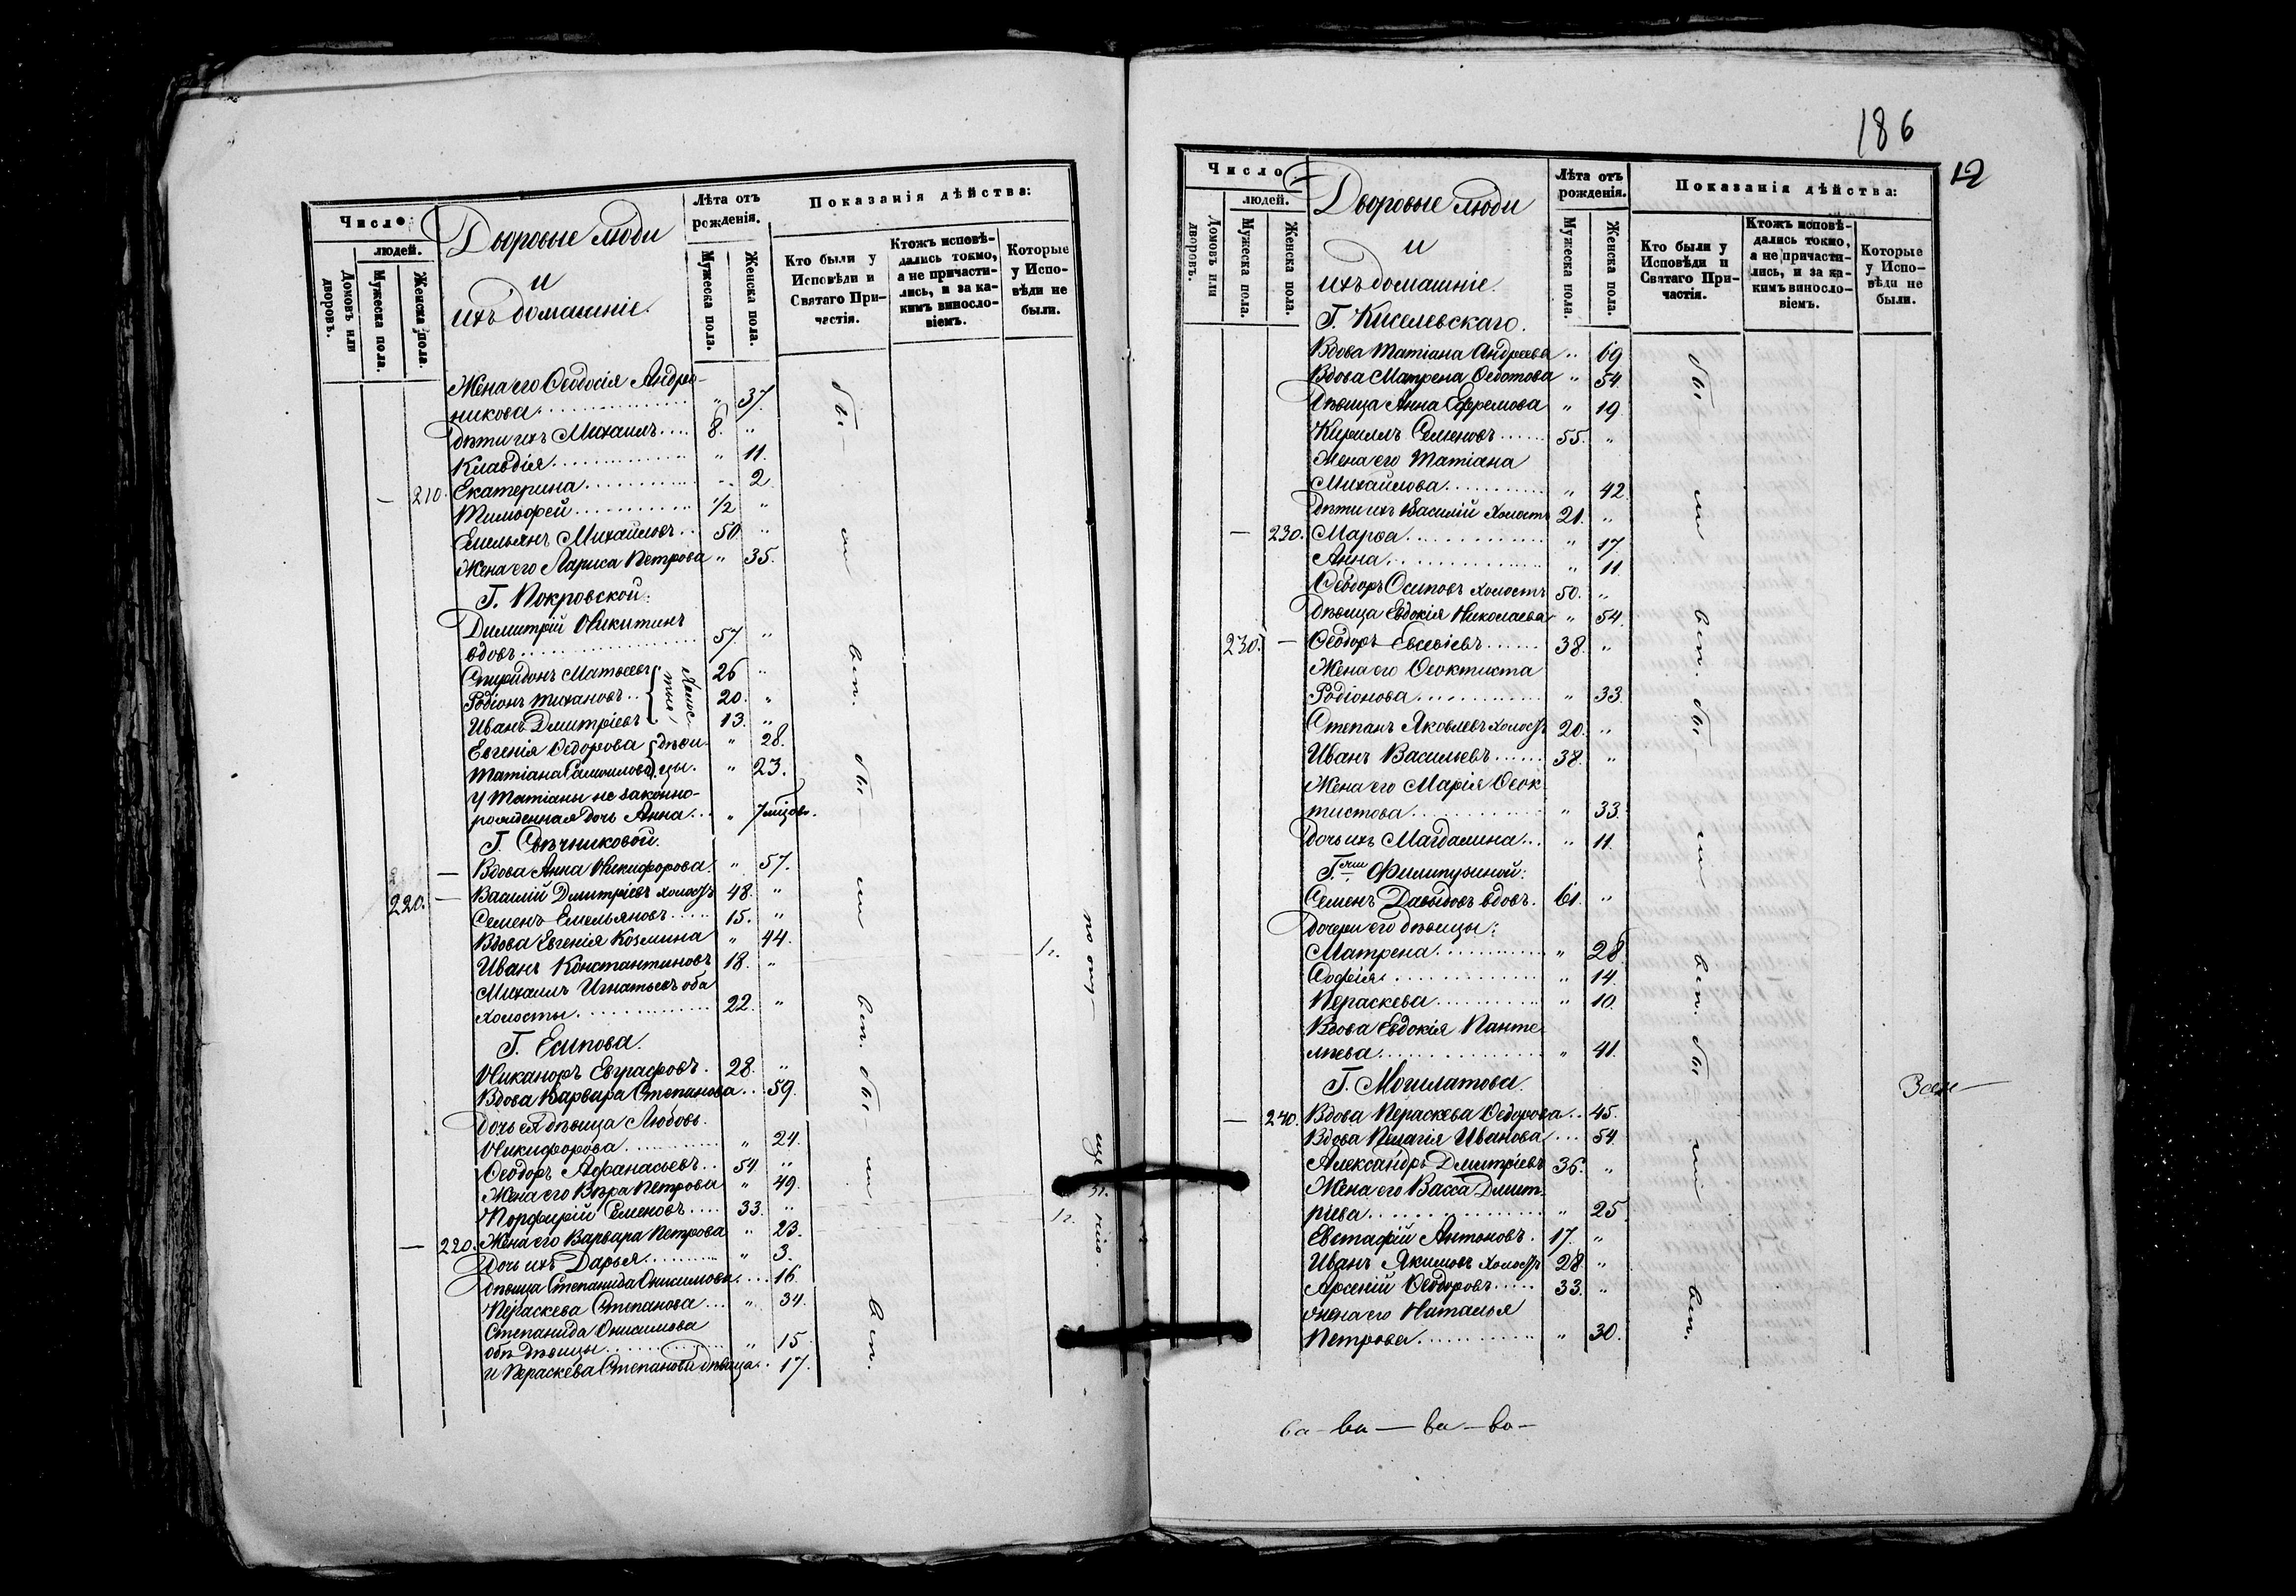 Число:
людей.
Домовъ или дворовъ.
Мужеска пола.
Женска пола.
Дворовые люди
и
ихъ домашніе.
Лѣта отъ рожденія.
Мужеска пола.
Женска пола.
Показанія дѣйства:
Кто были у Исповѣди и Святаго Причастія.
Ктожъ исповѣдались токмо, а не причастились, и за какимъ винословіемъ.
Которые у Исповѣди не были.
Жена его Ѳеодосія Андро-
никова " 37.
Дѣти ихъ Михаилъ 8. "
Клавдія " 11.
— 210. Екатерина " 2
Тимофей 1/2 "
Емельянъ Михайловъ 50 "
Жена его Лариса Петрова " 35.
Г. Покровской:
Димитрій Никитинъ
вдовъ 57. "
Спиридонъ Матвѣевъ 26 "
Родіонъ Тихановъ 20. "
Иванъ Дмитріевъ 13. "
Холостые
Евгенія Ѳедорова " 28.
Татіана Самоилова " 23.
дѣвицы.
У Татіаны не законно-
рожденная дочь Анна " 7 мѣцов.
Г. Свѣчниковой.
— Вдова Анна Никифорова. " 57.
220. — Василій Дмитріевъ холостъ 48. "
Семенъ Емельяновъ 15. "
Вдова Евгенія Козмина " 44.
Иванъ Константиновъ 18. "
Михаилъ Игнатьевъ оба
холосты 22. "
Г. Есипова.
Никаноръ Евграфовъ. 28. "
Вдова Варвара Степанова 59.
Дочь ея дѣвица Любовь
Никифорова " 24.
Ѳеодоръ Афанасьевъ 54 "
Жена его Вѣра Петрова " 49.
Порфирій Семеновъ 33. "
— 220. Жена его Варвара Петрова " 23.
Дочь ихъ Дарья " 3.
Дѣвица Степанида Онисимова 16.
Пераскева Степанова " 34.
Степанида Онисимова
обѣ дѣвицы " 15
и Пераскева Степанова дѣвица 17.
бы- ли вси. бы- ли вси. бы- ли вси.
186
12
Число:
людей.
Домовъ или дворовъ.
Мужеска пола.
Женска пола.
Дворовые люди
и
ихъ домашніе.
Лѣта отъ рожденія.
Мужеска пола.
Женска пола.
Показанія дѣйства:
Кто были у Исповѣди и Святаго Причастія.
Ктожъ исповѣдались токмо, а не причастились, и за какимъ винословіемъ.
Которые у Исповѣди не были.
Г. Киселевскаго.
Вдова Татіана Андреева " 69
Вдова Матрена Ѳедотова " 54.
Дѣвица Анна Ефремова " 19.
Кириллъ Семеновъ 55. "
Жена его Татіана
Михайлова " 42.
Дѣти ихъ Василій холостъ 21. "
— 230. Марѳа " 17.
Анна " 11.
Ѳеодоръ Осиповъ холостъ 50. "
Дѣвица Евдокія Николаева " 54.
230. — Ѳеодоръ Евсевіевъ 38. "
Жена его Ѳеоктиста
Родіонова " 33.
Степанъ Яковлевъ холостъ 20. "
Иванъ Васильевъ 38. "
Жена его Марія Ѳеок-
тистова " 33.
Дочь ихъ Магдалина " 11.
Г.жи Филипузиной:
Семенъ Давыдовъ вдовъ. 61. "
Дочери его дѣвицы:
Матрена " 28.
Софія " 14.
Пераскева " 10.
Вдова Евдокія Панте-
лѣева " 41.
Г. Могилатова.
— 240. Вдова Пераскева Ѳедорова 45.
Вдова Пелагія Иванова 54.
Александръ Дмитріевъ 36. "
Жена его Васса Дмит-
ріева " 25
Евстафій Антоновъ. 17. "
Иванъ Якимовъ холостъ 28. "
Арсеній Ѳеодоровъ 33. "
Жена его Наталья
Петрова " 30.
бы- ли вси. бы- ли вси. бы- ли вси.
ва — ва — ва — ва —